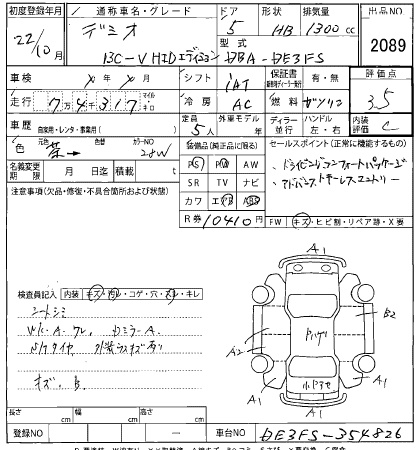 初度登録年月 通称車名・グレード ドア 形状 排気量 出品NO
22/10月 デミオ 5 HB 1300cc
13C-V HIDエディション 型式 DBA-DE3FS 2089
車検 シフト IAT 保証書 有・無 評価点
走行 7万4千317 マイル キロ 冷房 AC 燃料 ガソリン 3.5
車歴 自家用・レンタ・事業用( ) 定員 5人 外車モデル 年 ディーラー 並行 ハンドル 左・右 内装評価 C
色 元色 茶→ 色替 カラーNO 28W
装備品(純正品に限る) セールスポイント(正常に機能するもの)
名義変更期限 月 日迄 積載 t
PS PW AW
・ドライビングコンフォートパッケージ
SR TV ナビ
・アドバンストキーレスエントリー
カワ エアB ABS
注意事項(欠品・修復・不具合箇所および状態)
R券 10410円
FW キズ・ヒビ割・リペア跡・X要
検査員記入 内装 キズ・汚レ・コゲ・穴・スレ・キレ
シートシミ
ドアミラーA
キズ、B
A1
A1
B2
A2
Pハゲ
小Pヨセ
A1
A1
長さ cm 幅 cm 高さ cm
登録NO ー 車台NO DE3FS-354826